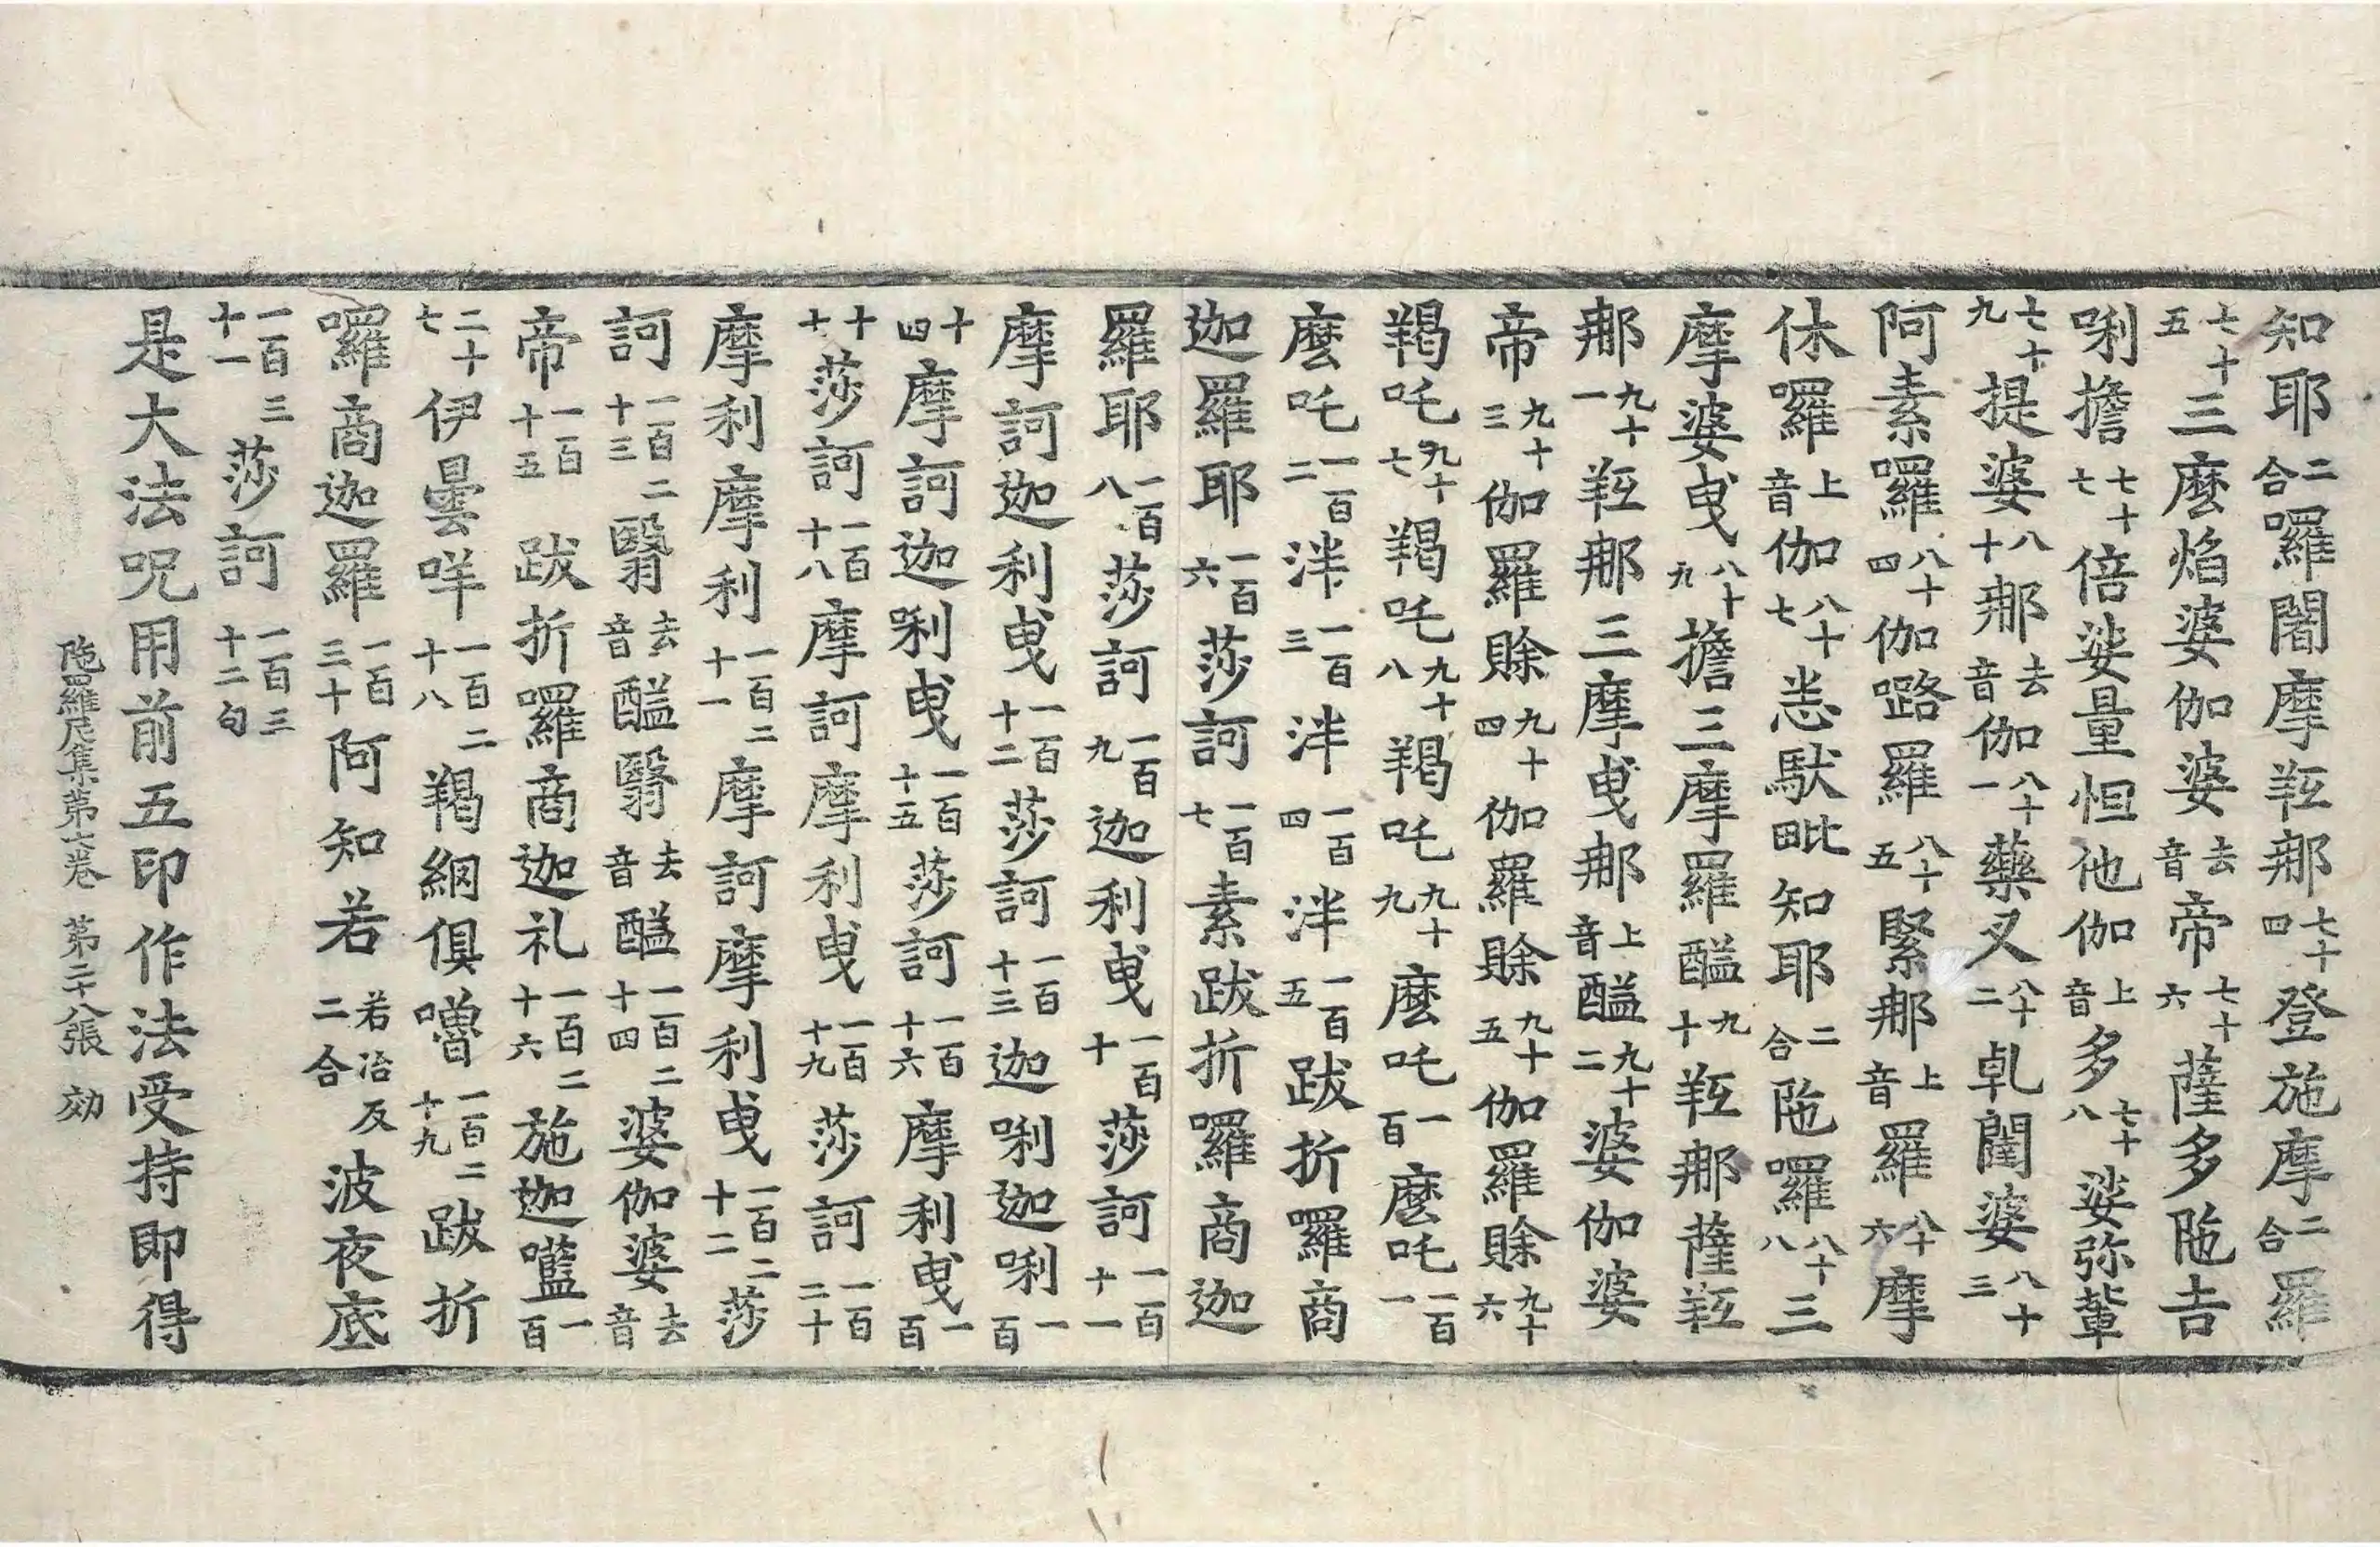 知耶二合囉闍摩䩭那七十四登施摩二合羅
七十五三麼焰婆伽婆去音帝六七十薩多陁吉
唎擔七十七倍娑量怛他伽上音多七十八娑弥葷
七十九提婆八十那去音伽八十一藥叉八十二乹闥婆八十三
阿素囉八十四伽嚕羅八十五緊那上音羅八十六摩
休囉上音伽八十七恙馱毗知耶二合陁囉八十八三
摩婆曳八十九擔三摩羅醯九十䩭那薩䩭
那九十一䩭那三摩曳那上音醯九十二婆伽婆
帝九十三伽羅賒九十四伽羅賒九十五伽羅賒九十六
羯吒九十七羯吒九十八羯吒九十九麼吒一百麼吒一百一
麼吒一百二泮一百三泮一百四泮一百五跋折囉商
迦羅耶一百六莎訶一百七素跋折囉商迦
羅耶一百八莎訶一百九迦利曳一百十莎訶一百十一
摩訶迦利曳一百十二莎訶一百十三迦唎迦唎一百
十四摩訶迦唎曳一百十五莎訶一百十六摩利曳一百
十七莎訶一百十八摩訶摩利曳一百十九莎訶一百二十
摩利摩利一百二十一摩訶摩利曳一百二十二莎
訶一百二十三翳去音醯翳去音醯一百二十四婆伽婆去音
帝一百二十五跋折囉商迦礼一百二十六施迦嚂一百
二十七伊曇咩一百二十八羯綱俱嚕一百二十九跋折
囉商迦羅一百三十阿知若若冶反二合波夜底
一百三十一莎訶一百三十二句
是大法呪用前五印作法受持即得
陁羅尼集第六卷 第二十八張 効